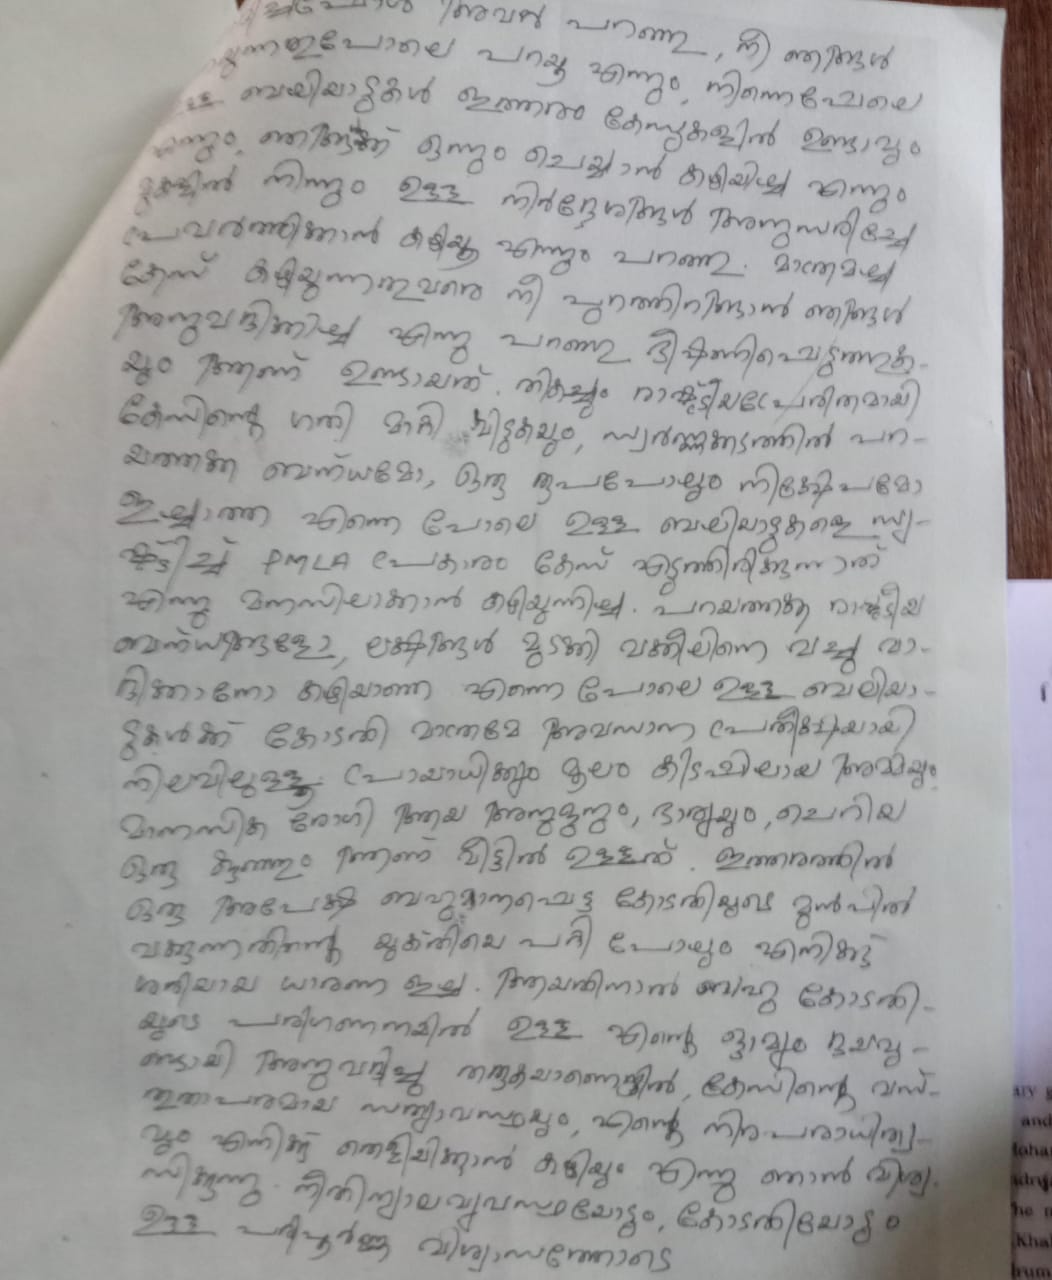 അവർ പറഞ്ഞു, നീ ഞങ്ങൾ
പോലെ പറയൂ എന്നും, നിന്നെപോലെ
ഉള്ള ബലിയാടുകൾ ഇത്തരം കേസുകളിൽ ഉണ്ടാവും
എന്നും, ഞങ്ങൾക്ക് ഒന്നും ചെയ്യാൻ കഴിയില്ല എന്നും
മുകളിൽ നിന്നും ഉള്ള നിർദ്ദേശങ്ങൾ അനുസരിച്ചേ
പ്രവർത്തിക്കാൻ കഴിയൂ എന്നും പറഞ്ഞു. മാത്രമല്ല
കേസ് കഴിയുന്നതുവരെ നീ പുറത്തിറങ്ങാൻ ഞങ്ങൾ
അനുവദിക്കില്ല എന്നു പറഞ്ഞു ഭീഷണിപ്പെടുത്തുക-
യും ആണ് ഉണ്ടായത്. തികച്ചും രാഷ്ട്രീയപ്രേരിതമായി
കേസിന്റെ ഗതി മാറ്റി വിടുകയും, സ്വർണ്ണക്കടത്തിൽ പറ-
യത്തക്ക ബന്ധമോ, ഒരു രൂപപോലും നിക്ഷേപമോ
ഇല്ലാത്ത എന്നെ പോലെ ഉള്ള ബലിയാടുകളെ സൃ-
ഷ്ടിച്ച് PMLA പ്രകാരം കേസ് എടുത്തിരിക്കുന്നത്
എന്നു മനസിലാക്കാൻ കഴിയുന്നില്ല. പറയത്തക്ക രാഷ്ട്രീയ
ബന്ധങ്ങളോ, ലക്ഷങ്ങൾ മുടക്കി വക്കീലിനെ വച്ചു വാ-
ദിക്കാനോ കഴിയാത്ത എന്നെ പോലെ ഉള്ള ബലിയാ-
ടുകൾക്ക് കോടതി മാത്രമേ അവസാന പ്രതീക്ഷയായി
നിലവിലുള്ളൂ. പ്രായാധിക്യം മൂലം കിടപ്പിലായ അമ്മയും,
മാനസിക രോഗി ആയ അനുജനും, ഭാര്യയും, ചെറിയ
ഒരു കുഞ്ഞും ആണ് വീട്ടിൽ ഉള്ളത്. ഇത്തരത്തിൽ
ഒരു അപേക്ഷ ബഹുമാനപ്പെട്ട കോടതിയുടെ മുൻപിൽ
വക്കുന്നതിന്റെ യുക്തിയെ പറ്റി പോലും എനിക്കു
ശരിയായ ധാരണ ഇല്ല. ആയതിനാൽ ബഹു കോടതി-
യുടെ പരിഗണനയിൽ ഉള്ള എന്റെ ജാമ്യം ദയവു-
ണ്ടായി അനുവദിച്ചു തരുകയാണെങ്കിൽ, കേസിന്റെ വസ്-
തുതാപരമായ സത്യാവസ്ഥയും, എന്റെ നിരപരാധിത്വ-
വും എനിക്കു തെളിയിക്കാൻ കഴിയും എന്നു ഞാൻ വിശ്വ-
സിക്കുന്നു. നീതിന്യായവ്യവസ്ഥയോടും, കോടതിയോടും
ഉള്ള പരിപൂർണ്ണ വിശ്വാസത്തോടെ